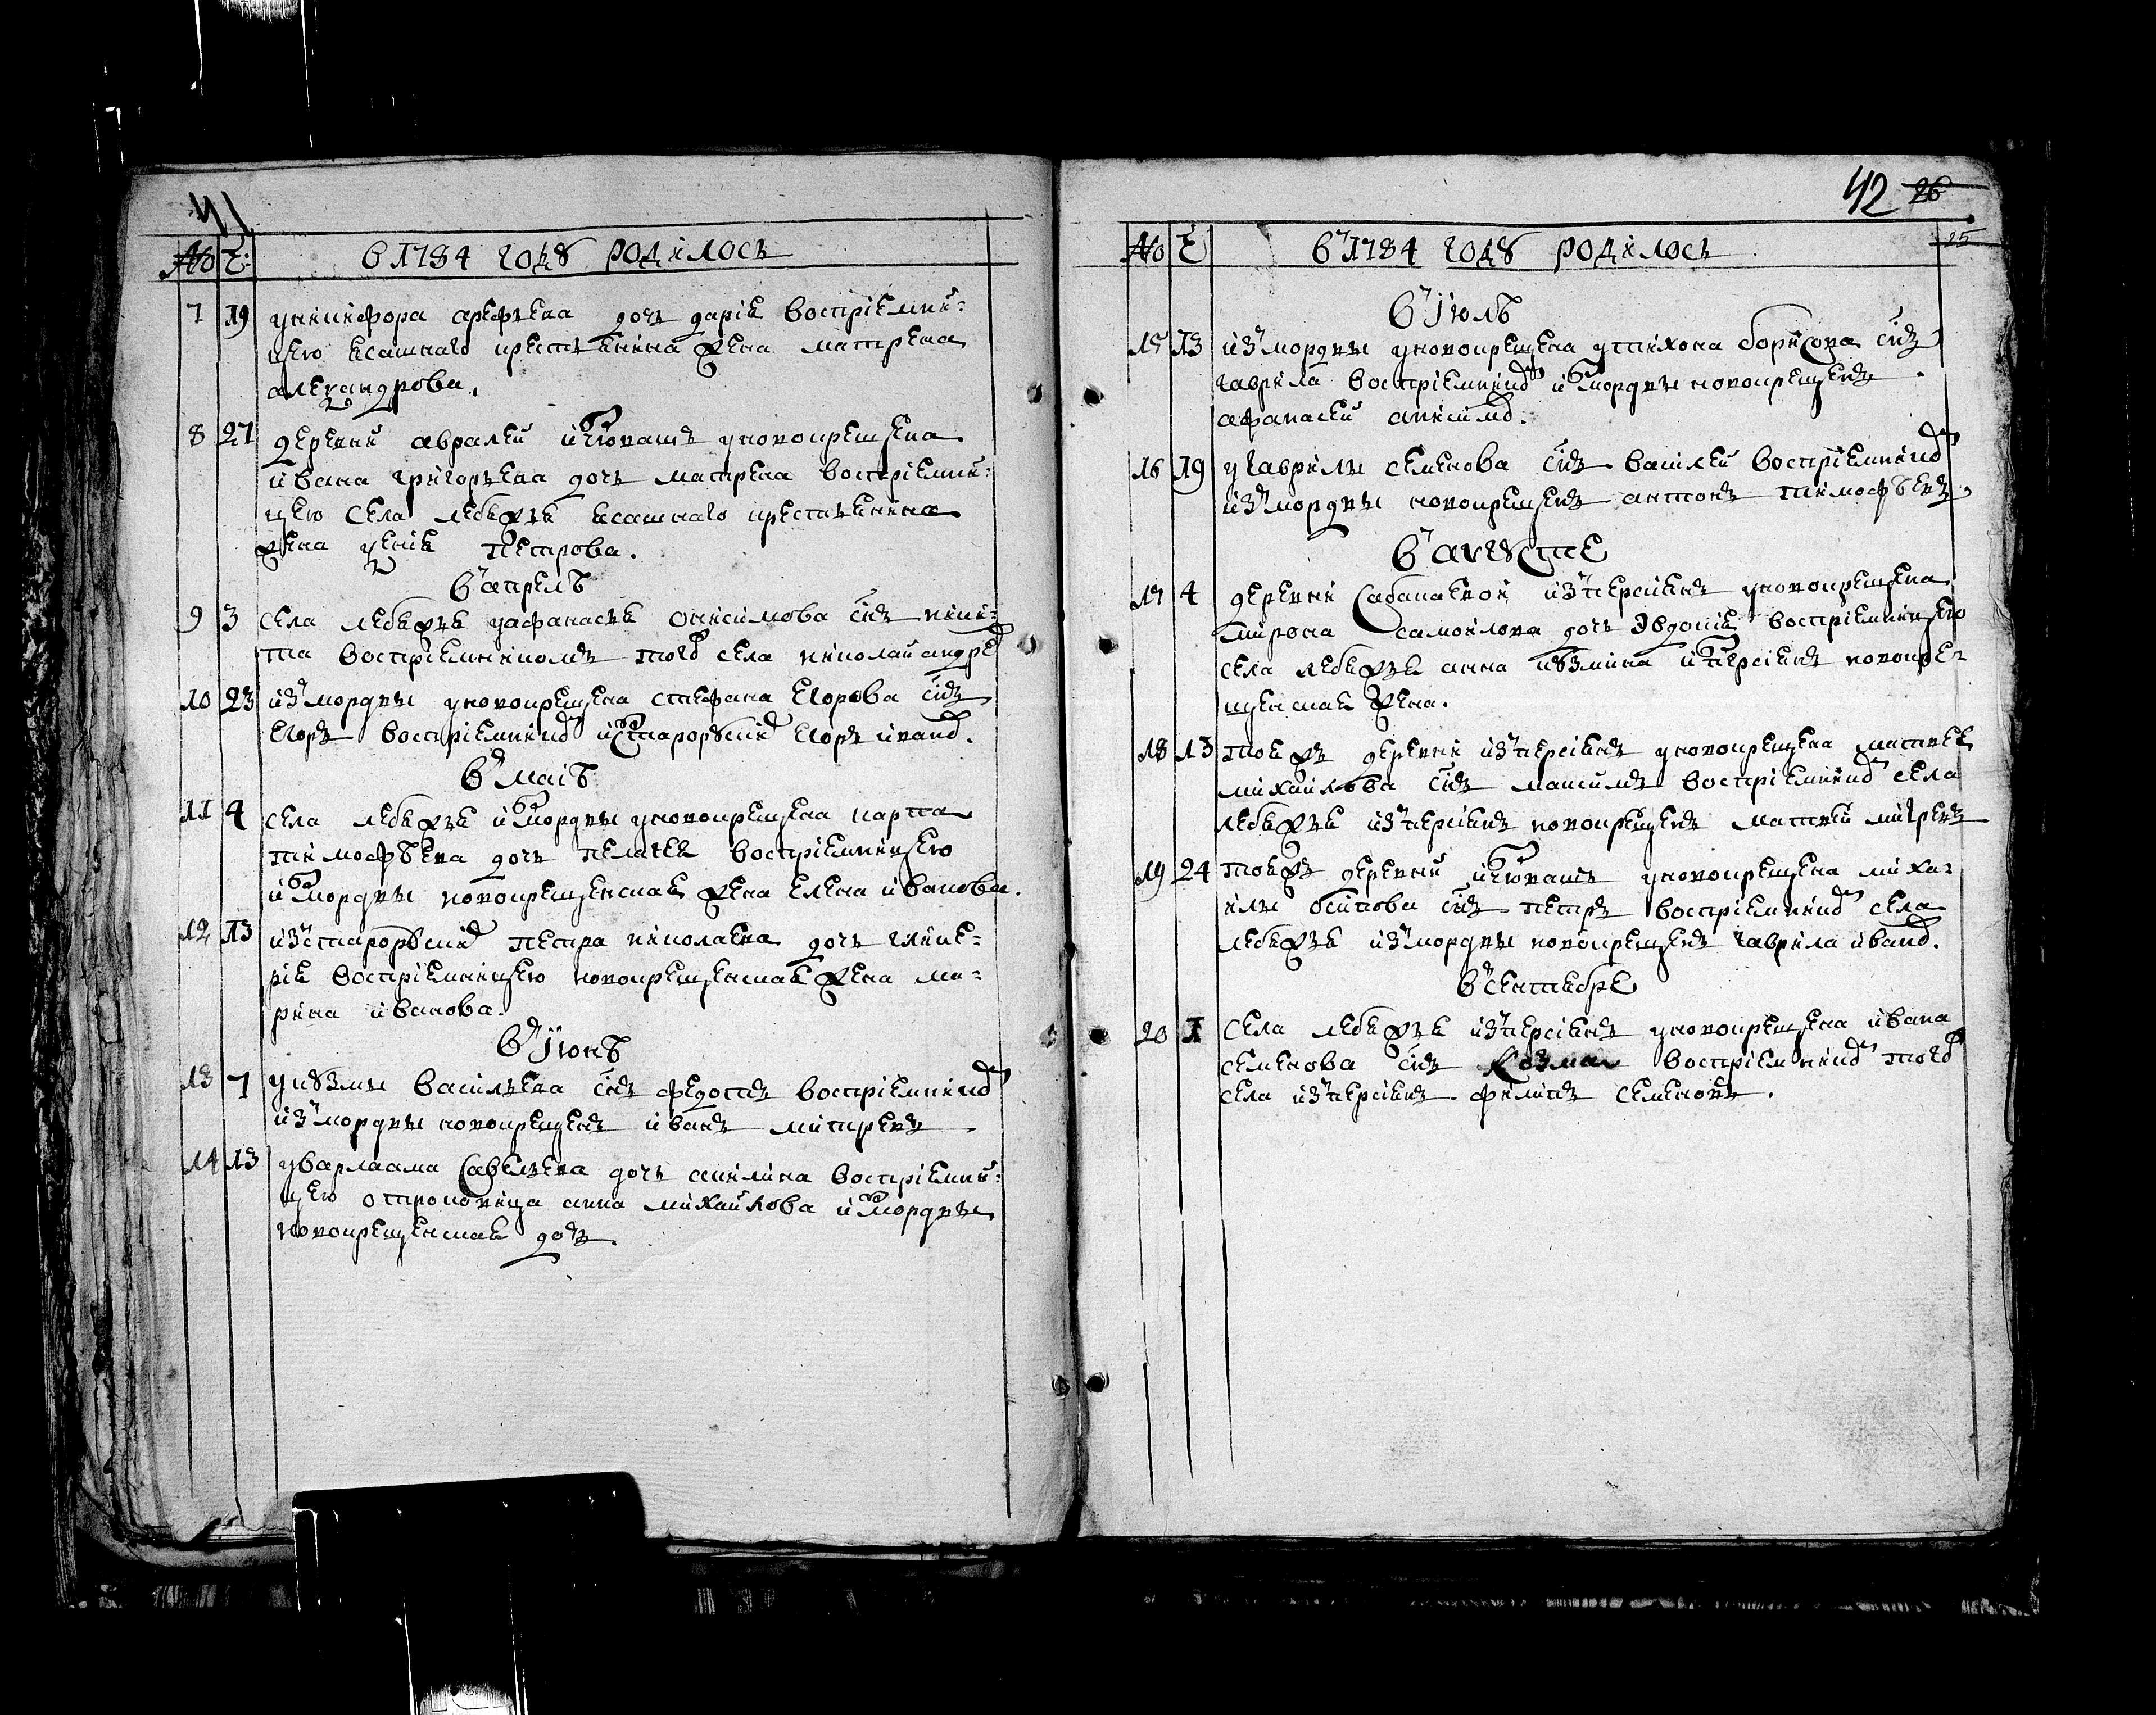 41
№ Ч: в 1784 годꙋ родилось
7 19 у никифора арефьева дочь дарія воспріемни=
цею ясашнаго крестьянина жена матрена
александрова.
8 27 деревни авралей из чювашъ у новокрещена
ивана григорьева дочь матрена воспріемни=
цею села лебяжья ясашнаго крестьянина
жена петрова.
в апрелѣ
9 3 села лебяжья у афанасья онисимова сн̃ъ ники=
та воспріемникомъ того села николай андре
10 23 из мордвы у новокрещена стефана егорова сн̃ъ
егоръ воспріемнико из старорꙋски егоръ ивано.
в маіѣ
11 4 села лебяжья из мордвы у новокрещена карпа
тимофѣева дочь пелагея воспріемницею
из мордвы новокрещенская жена елена иванова.
12 13 из старорꙋски петра николаева дочь глике=
рія воспріемницею новокрещенская жена ма=
рина иванова.
в іюнѣ
13 7 у кꙋзмы васильева сн̃ъ федотъ воспріемнико
из мордвы новокрещенъ иванъ митревъ
14 13 у варлаама савельева дочь акилина воспріемни=
цею отроковица анна михайлова из мордвы
новокрещенская дочь.
42 26
25
№ Ч в 1784 годꙋ родилось
в іюлѣ
15 13 из мордвы у новокрещена у тихона борисова сн̃ъ
гаврила воспріемнико из мордвы новокрещенъ
афанасей анисимо.
16 19 у гаврилы семенова сн̃ъ василей воспріемнико
из мордвы новокрещенъ антонъ тимофѣевъ
в авгꙋсте
17 4 деревни сабанаевой из персіянъ у новокрещена
мирона самойлова дочь Эвдокія воспріемницею
села лебяжья анна кꙋзмина из персіянъ новокре=
щенская жена.
18 13 тояжъ деревни из персіянъ у новокрещена матвея
михайлова сн̃ъ максимъ воспріемнико села
лебяжья из персіянъ новокрещенъ матвей митревъ
19 24 тояжъ деревни из чювашъ у новокрещена миха=
илы осипова сн̃ъ петръ воспріемнико села
лебяжья из мордвы новокрещенъ гаврила ивано.
в сентябре
20 1 села лебяжья из персіянъ у новокрещена ивана
семенова сн̃ъ козма воспріемнико того
села из персіянъ филипъ семеновъ.